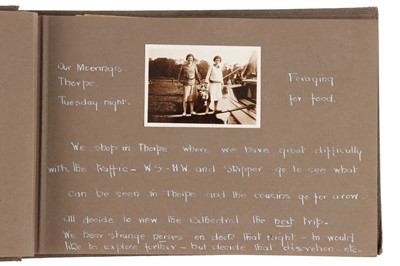 Our Moorings.
Thorpe.
Tuesday night.
Foraging
for food.
We stop in Thorpe where we have great difficulty
with the traffic - W.S-H.W and Skipper go to see what
can be seen in Thorpe and the cousins go for a row.
all decide to view the Cathedral the next trip.
We hear strange noises on deck that night - & would
like to explore further - but decide that discretion etc.